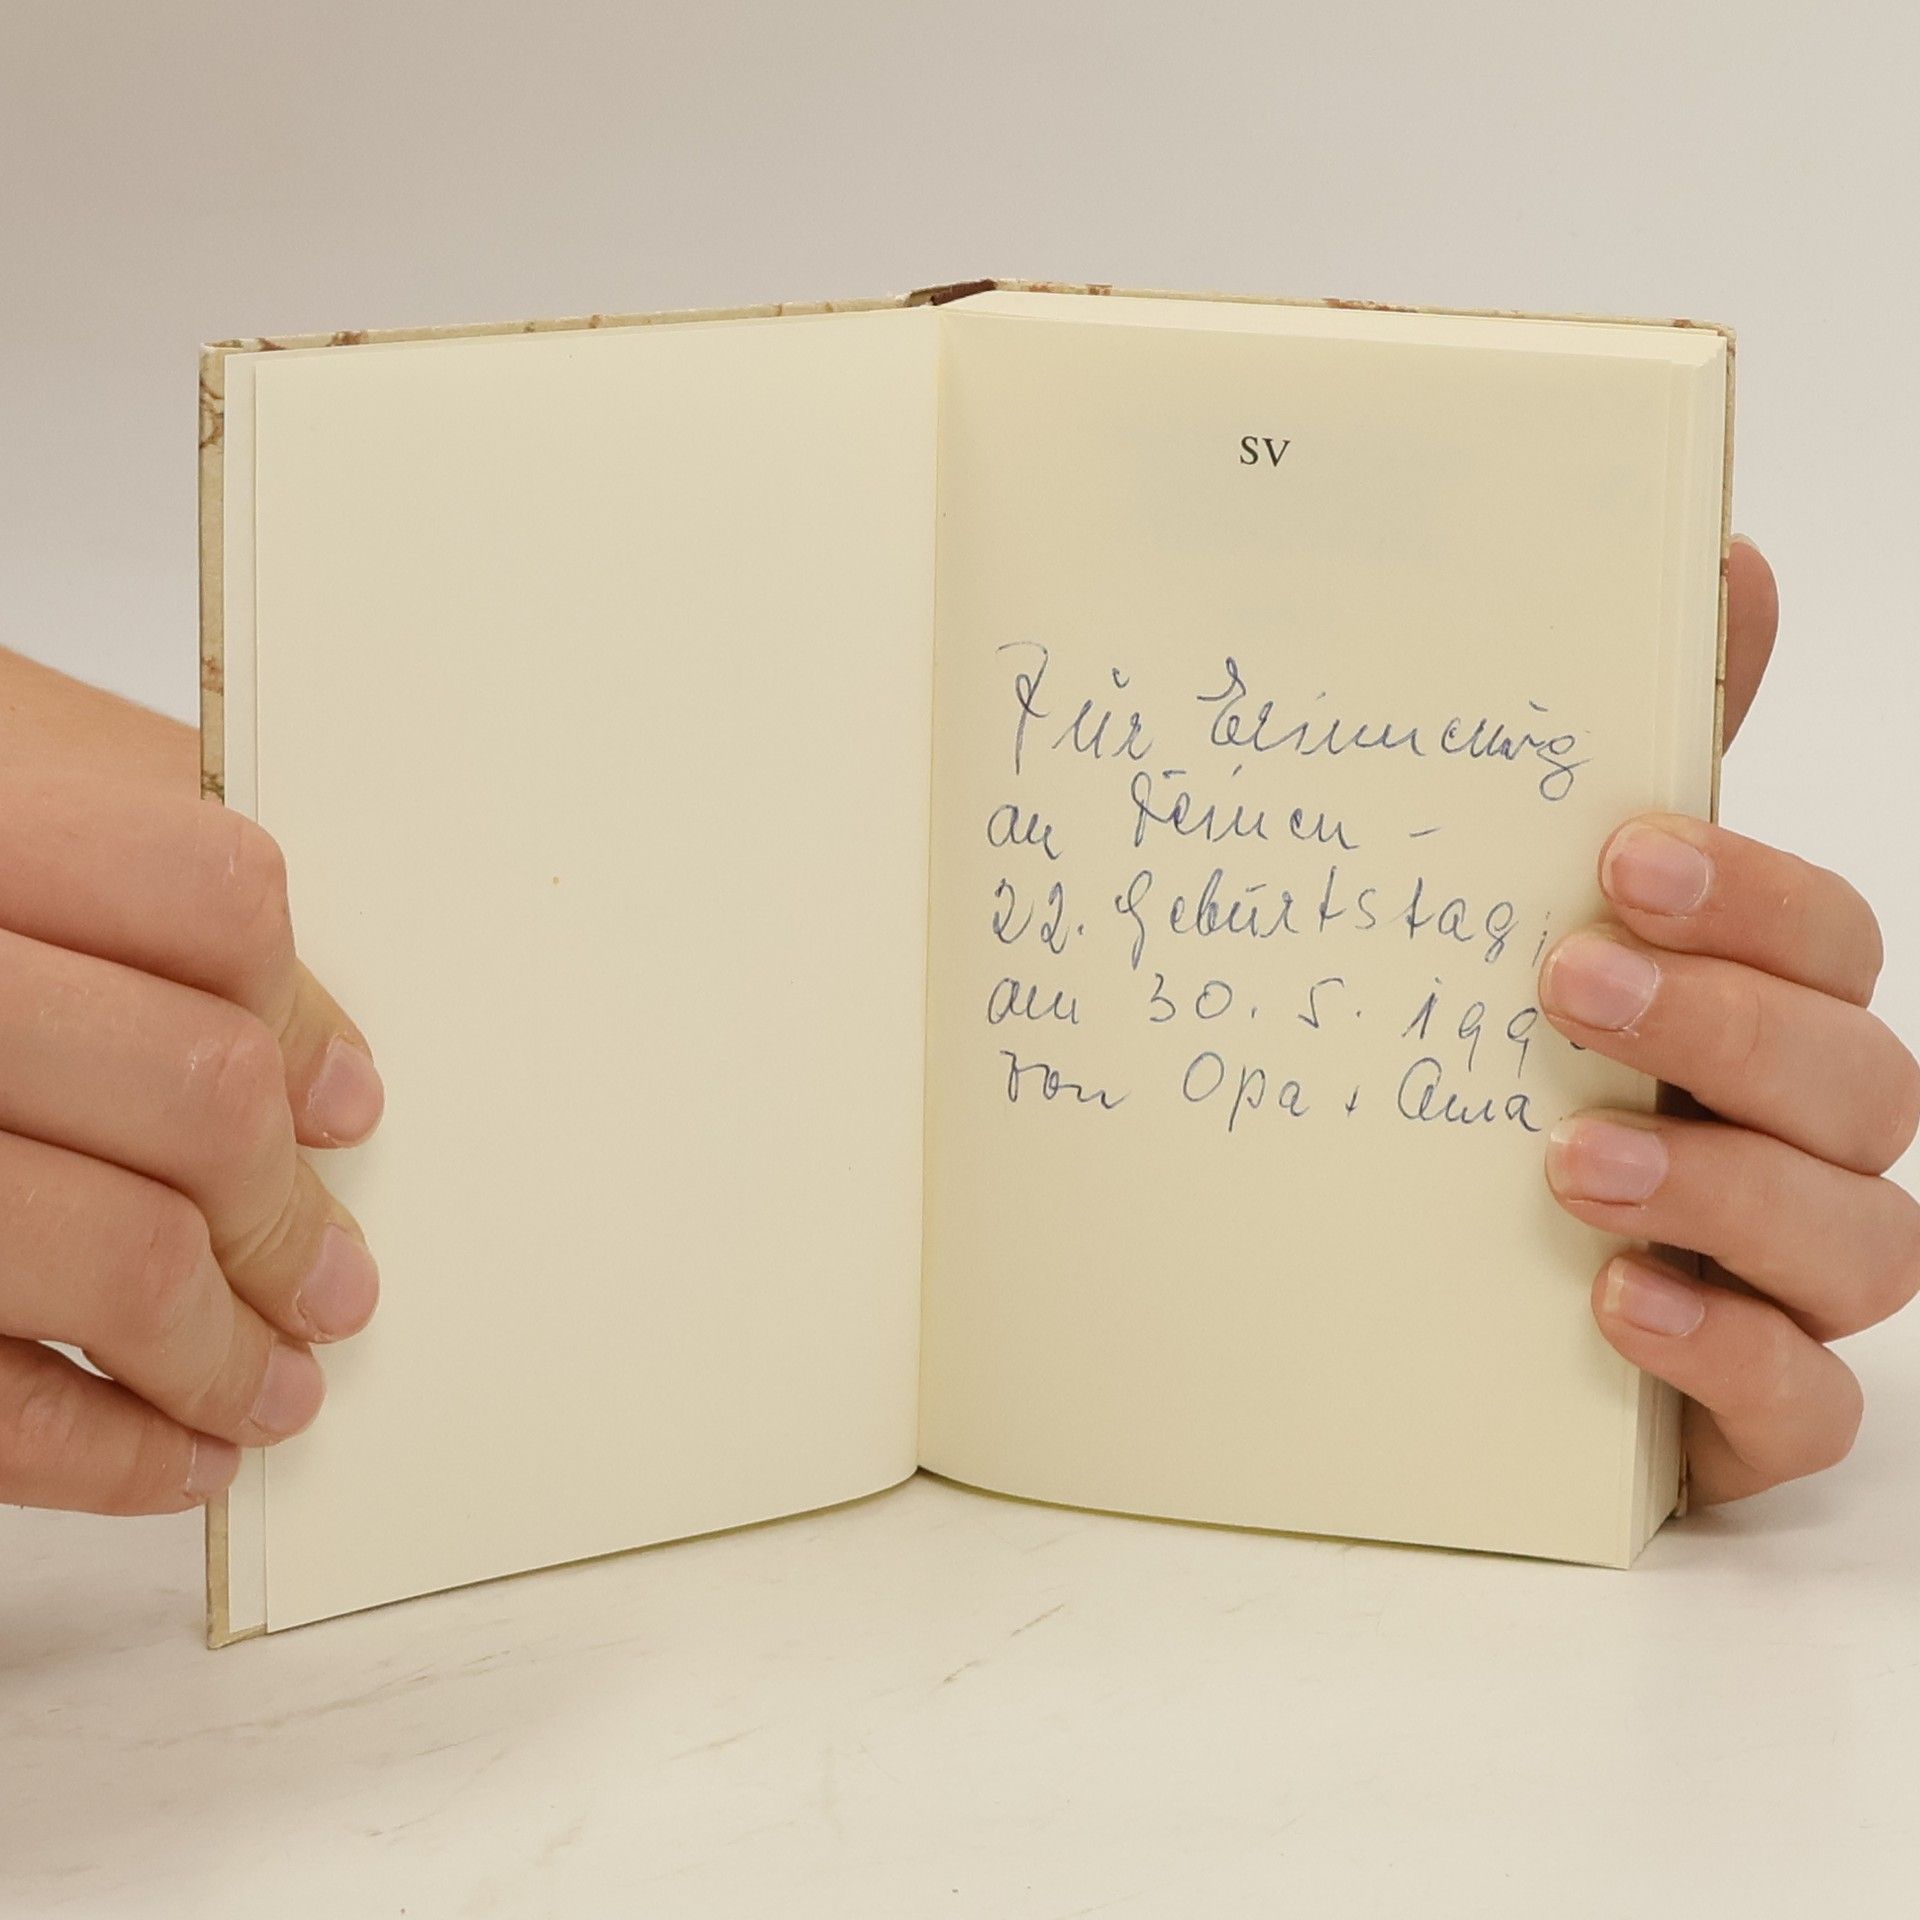 SV
Zur Erinnerung
an Deinen -
22. Geburtstag,
am 30. 5. 199
von Opa + Oma